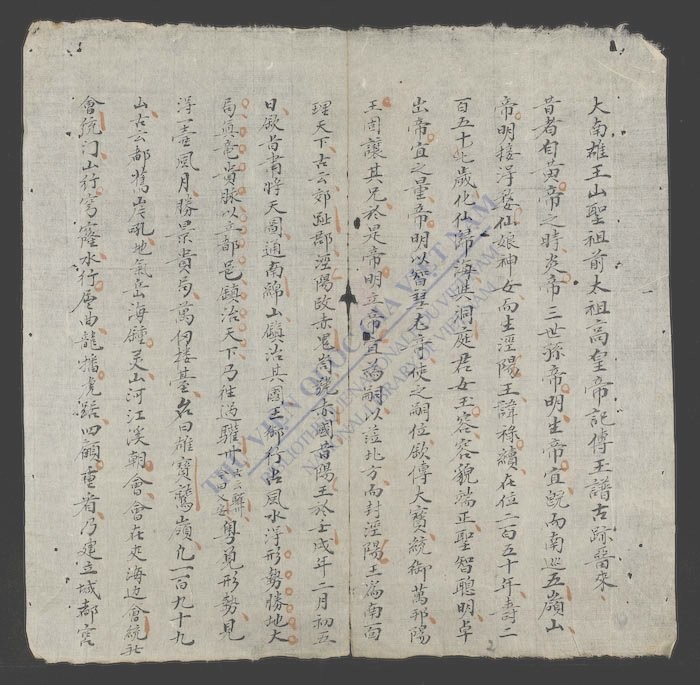 大南雄王山聖祖前太祖高皇帝記傳玉譜古跡晉來
昔者自黃帝之時炎帝三世孫帝明生帝宜既而南巡五嶺山
帝明接得婺仙娘神女而生涇陽王諱祿續在位二百五十年壽二
百五十九歲化仙歸海與洞庭君女玉容容貌端正聖智聰明卓
出帝宜之量帝明以智慧奇使之嗣位欲傳大寶統御萬邦陽
王固讓其兄於是帝明立帝宜為嗣以蒞北方而封涇陽王為南面
理天下古云郊趾郡涇陽改赤鬼尚號赤國昔陽王於壬戌年二月初五
日歐昔肅將天圖通南綿山鎮治其國王御行占風水得形勢勝地大
局真竜貴脉以立都邑鎮治天下乃往過驩州粵見形勢見
得一壺風月勝景貴局萬仞樓臺名曰雄寶鷲嶺九一百九十九
山古云都舊岸吼地氣岳海鍾灵山河江溪朝會會在夾海边會統
會統门山行穹窿水行屈曲龍播虎踞四顧重省乃建立城都宮
THƯ VIỆN QUỐC GIA VIỆT NAM
BIBLIOTHÈQUE NATIONALE DU VIETNAM
NATIONAL LIBRARY OF VIETNAM
2